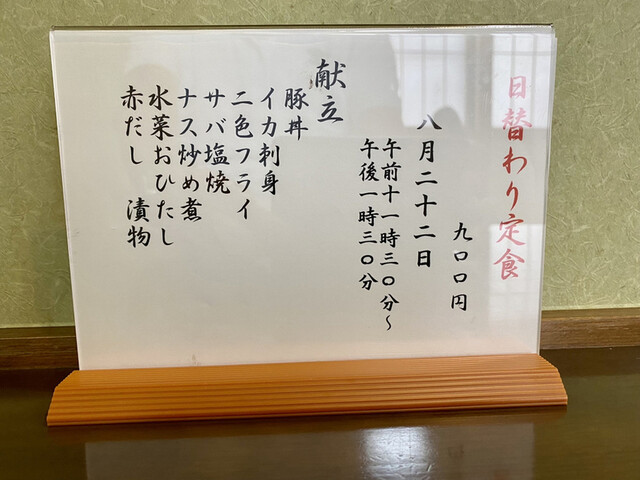 日替わり定食
九〇〇円
八月二十二日
午前十一時三〇分～
午後一時三〇分
献立
豚丼
イカ刺身
二色フライ
サバ塩焼
ナス炒め煮
水菜おひたし
赤だし　漬物